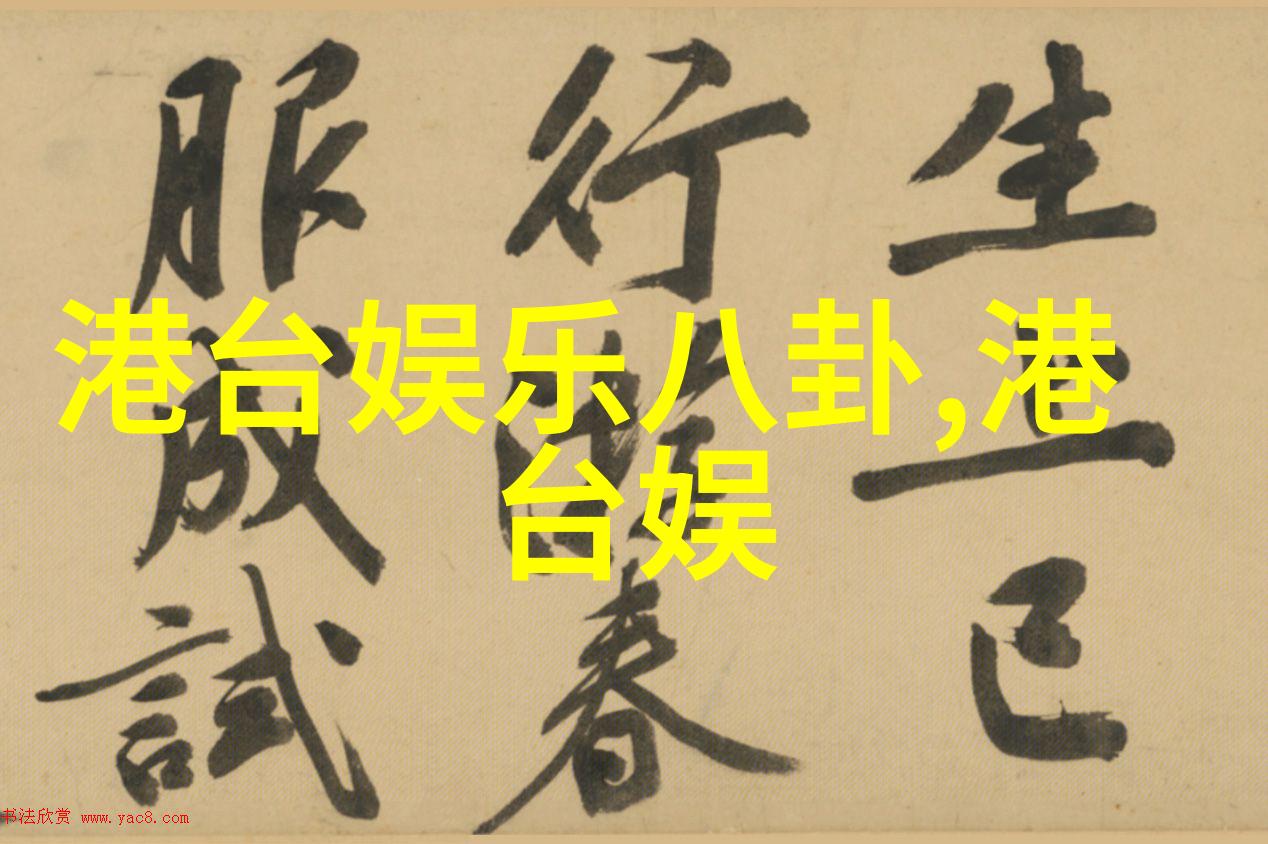 港台娱乐八卦,港
台娱
生上已
行春
服成試
书法欣赏 www.yac8.com